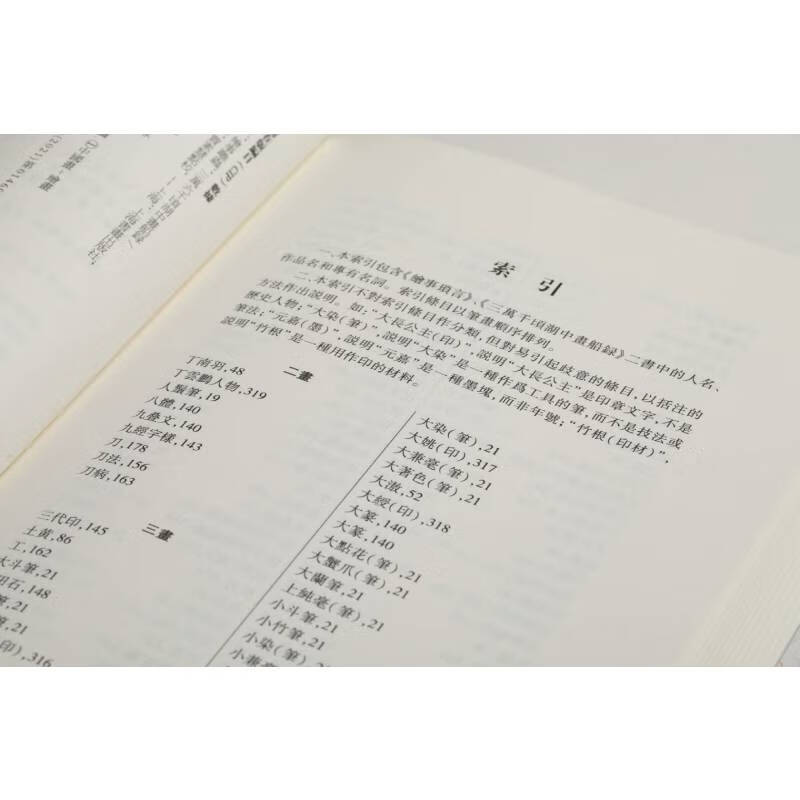 索引
一、本索引包含《繪事瑣言》、《三萬六千頃湖中畫船録》二書中的人名、
作品名和專有名詞。索引條目以筆畫順序排列。
二、本索引不對索引條目作分類，但對易引起歧意的條目，以括注的
方法作出説明。如：“大長公主(印)”，説明“大長公主”是印章文字，不是
歷史人物；“大染(筆)”，説明“大染”是一種作爲工具的筆，而不是技法或
筆法；“元嘉(墨)”，説明“元嘉”是一種墨塊，而非年號；“竹根(印材)”，
説明“竹根”是一種用作印的材料。
二畫
丁南羽,48
丁雲鵬人物,319
人鬚筆,19
八體,140
九疊文,140
九經字樣,143
刀,178
刀法,156
刀病,163
三畫
三代印,145
土黄,86
工,162
大斗筆,21
石,148
,21
,21
印),316
大染(筆),21
大姚(印),317
大兼毫(筆),21
大著色(筆),21
大滌,52
大綬(印),318
大篆,140
大篆,140
大點花(筆),21
大蟹爪(筆),21
大蘭筆,21
上純毫(筆),21
小斗筆,21
小竹筆,21
小染(筆),21
小兼毫
(CIP)
(2021)第0146